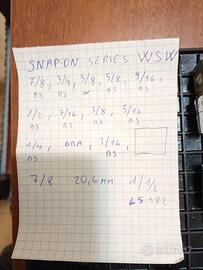 SNAP-ON SERIES WSW
7/8, 3/4, 5/8, 5/8, 9/16,
BS BS W BS BS
1/2, 7/16, 3/8, 5/16
BS BS BS BS
1/4, 0BA, 3/16,
BS BS
7/8 20,6 MM 1 1/2
LS 482